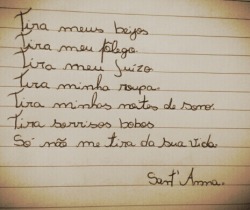 Tira meus beijos
Tira meu fôlego.
Tira meu juízo.
Tira minha roupa.
Tira minhas noites de sono.
Tira sorrisos bobos
Só não me tira da sua vida.
Sant' Anna.